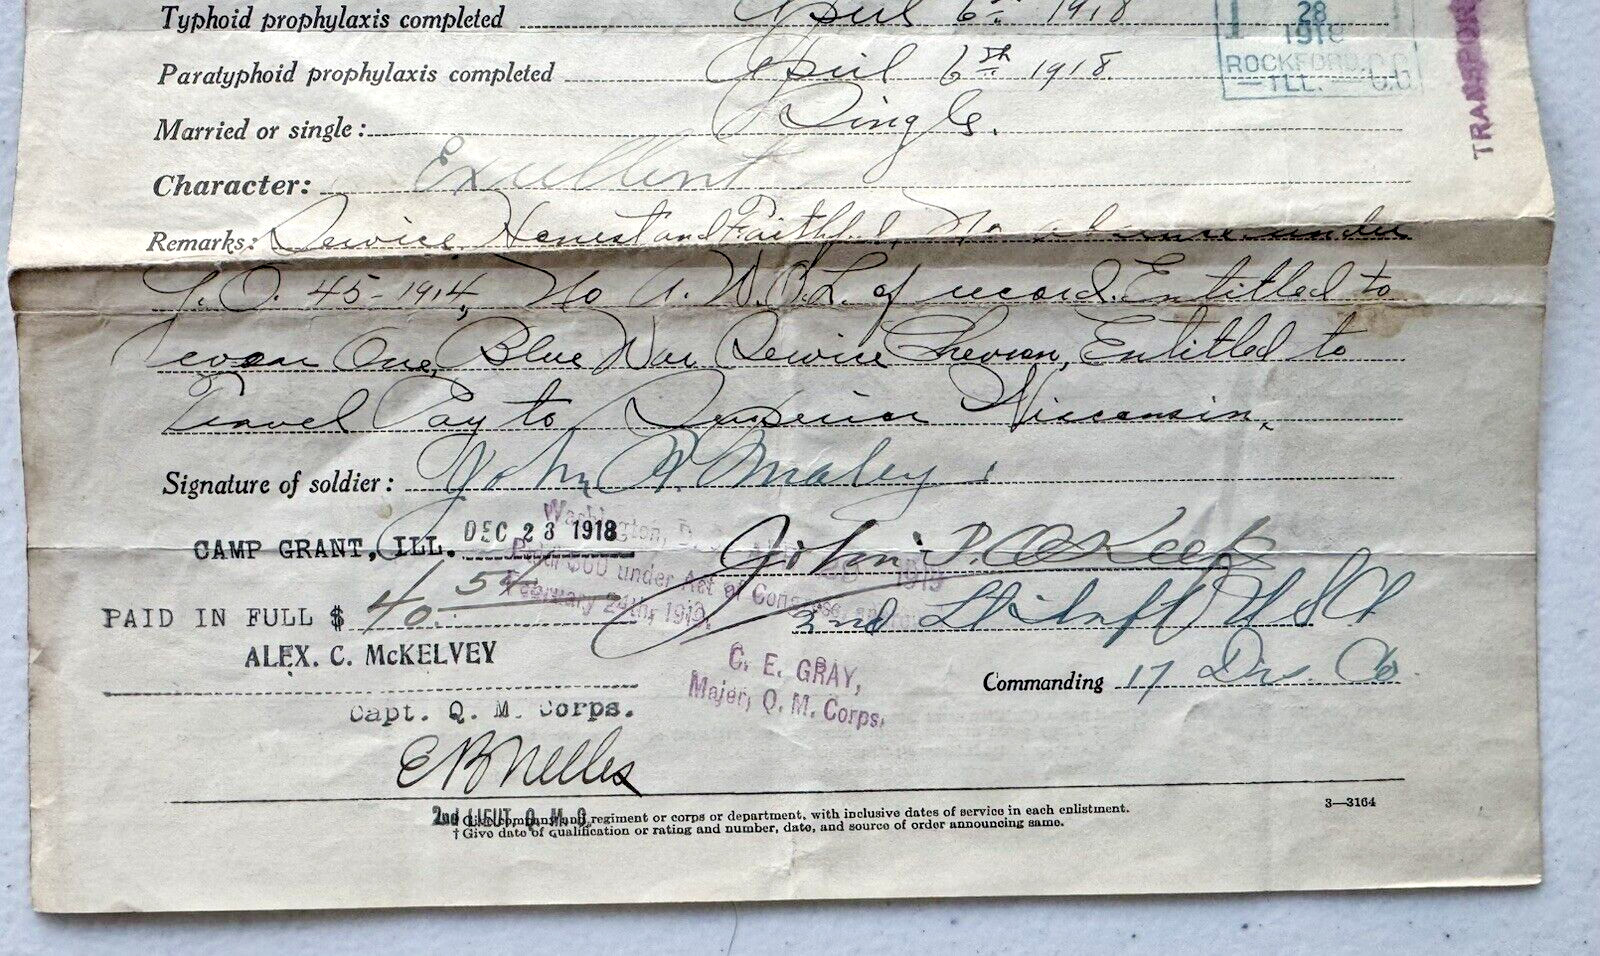 Typhoid prophylaxis completed April 6th 1918
28
1918
ROCKFORD
ILL.
TRANSPOR
Paratyphoid prophylaxis completed April 6th 1918.
Married or single: Single.
Character: Excellent
Remarks: Service Honest and Faithful, No absence under
G.O. 45-1914, No A.W.O.L. of record. Entitled to
wear One, Blue War Service Chevron, Entitled to
Travel Pay to Superior Wisconsin,
Signature of soldier: John A. Maley
CAMP GRANT, ILL. DEC 23 1918
John P. O'Keefe
Washington, D. 1919
Paid $60 under Act of Congress
February 24th, 1919.
PAID IN FULL $ 40.54
2nd Lt Inf U S A
ALEX. C. McKELVEY
C. E. GRAY,
Commanding 17 Dis. Co
Capt. Q. M. Corps.
Major, Q. M. Corps.
E B Nelles
2nd LIEUT. Q. M. C.
regiment or corps or department, with inclusive dates of service in each enlistment.
3—3164
† Give date of qualification or rating and number, date, and source of order announcing same.